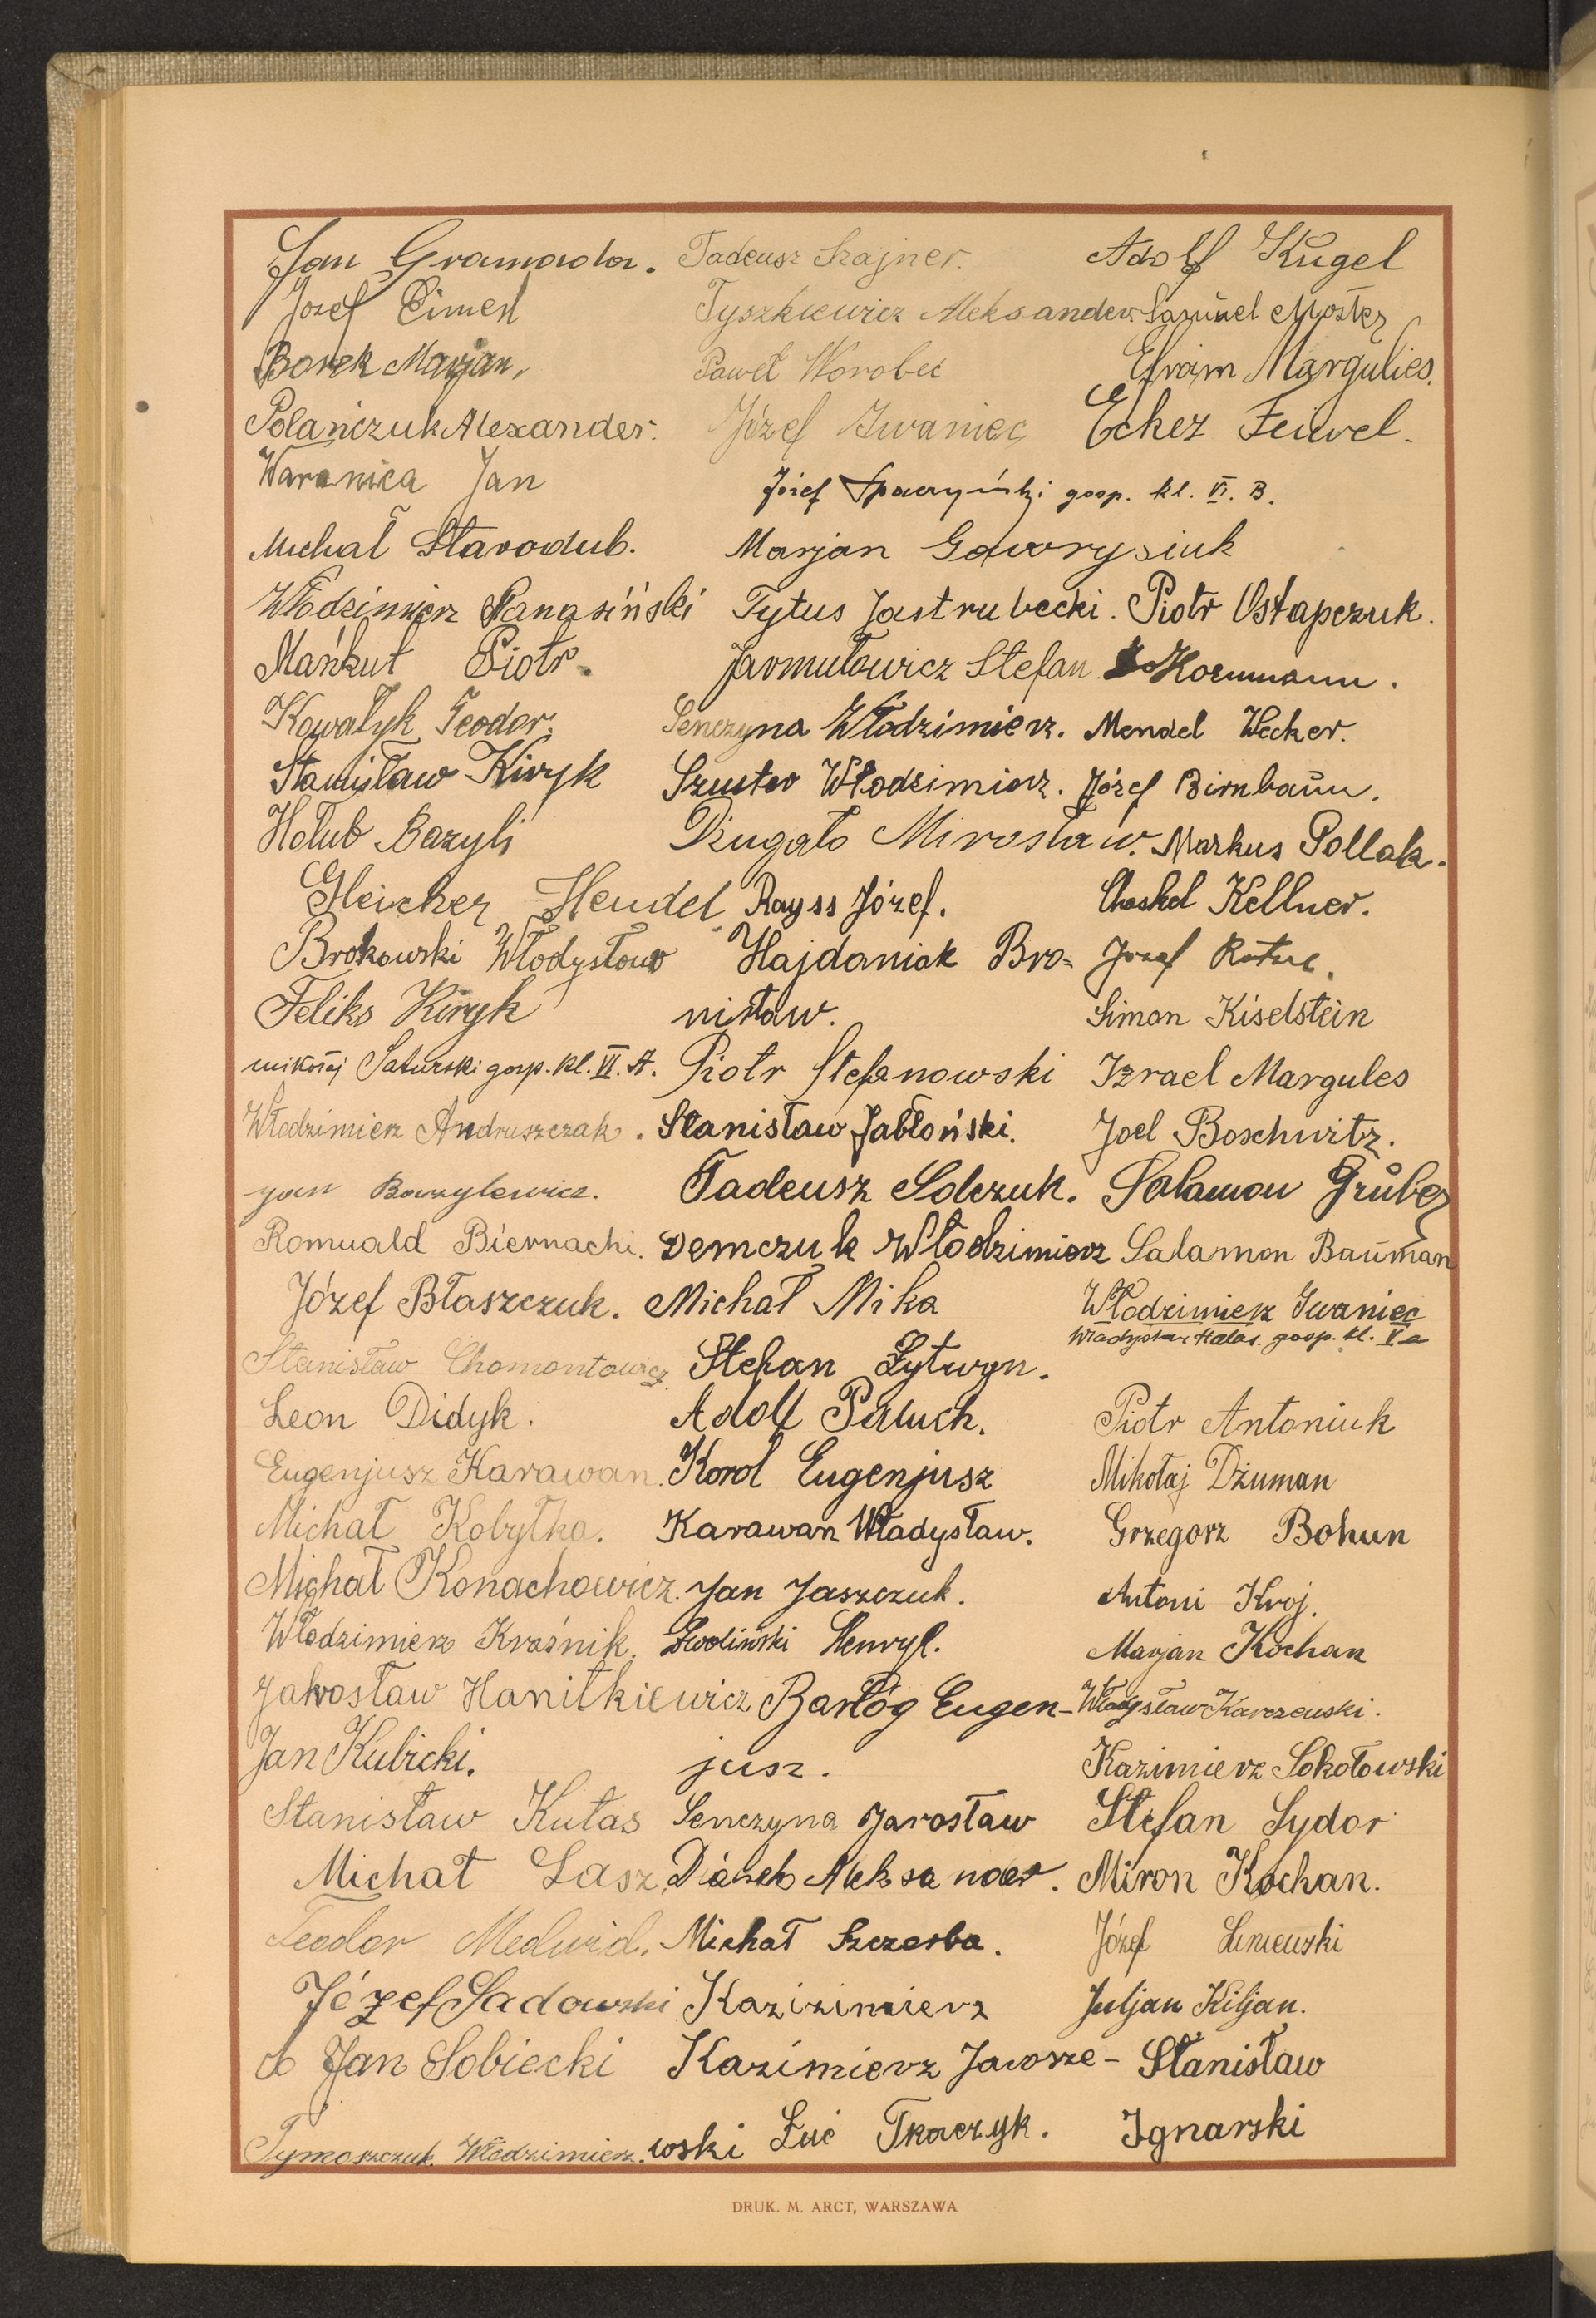 Jan Gramada.
Józef Cimerl
Borek Marjan.
Polańczuk Alexander.
Waranica Jan
Michał Starodub.
Włodzimierz Panasiński
Mańkut Piotr.
Kowałyk Teodor.
Stanisław Kiryk
Hołub Bazyli
Gleicher Hendel
Brokowski Włodysław
Feliks Kiryk
Mikołaj Saturski gosp. kl. VI. A.
Włodzimierz Andruszczak.
Jan Bazylewicz.
Romuald Biernacki.
Józef Błaszczuk.
Stanisław Chomontowicz.
Leon Didyk.
Eugenjusz Karawan.
Michał Kobyłko.
Michał Konachowicz.
Włodzimierz Kraśnik.
Jarosław Hanitkiewicz
Jan Kubicki.
Stanisław Kutas
Michał Łasz.
Teodor Medwid.
Józef Sadowski
Jan Sobiecki
Tymoszczuk Włodzimierz.
Tadeusz Szajner.
Tyszkiewicz Aleksander.
Paweł Worobec
Józef Iwaniec
Józef gosp. kl. VI. B.
Marjan Gaworysiuk
Tytus Jastrubecki.
Jarmułowicz Stefan
Senczyna Włodzimierz.
Szuster Włodzimierz.
Dżugało Mirosław.
Rayss Józef.
Hajdaniak Bro-
nisław.
Piotr Stefanowski
Stanisław Jabłoński.
Tadeusz Solczuk.
Demczuk Włodzimierz
Michał Mika
Stefan Łytwyn.
Adolf Paluch.
Korol Eugenjusz
Karawan Władysław.
Jan Jaszczuk.
Zwoliński Henryk.
Barłóg Eugen-
jusz.
Senczyna Jarosław
Aleksander.
Michał Szczerba.
Kazizimierz
Kazimierz Jarosze-
wski Łuć Tkaczyk.
Adolf Kugel
Samuel Moster
Efroim Margulies.
Ecker Feiwel.
Piotr Ostapczuk.
Kornmann.
Mendel Wecker.
Józef Birnbaum.
Markus Pollak.
Chaskel Kellner.
Józef
Simon Kiselstein
Izrael Margules
Joel Boschwitz.
Salamon Gruber
Salamon Bauman
Włodzimierz Iwaniec
Władysław Halas gosp. kl. V a
Piotr Antoniuk
Mikołaj Dżuman
Grzegorz Bohun
Antoni Kroj.
Marjan Kochan
Władysław Karczewski.
Kazimierz Sokołowski
Stefan Sydor
Miron Kochan.
Józef Liniewski
Juljan Kiljan.
Stanisław
Ignarski
DRUK. M. ARCT, WARSZAWA